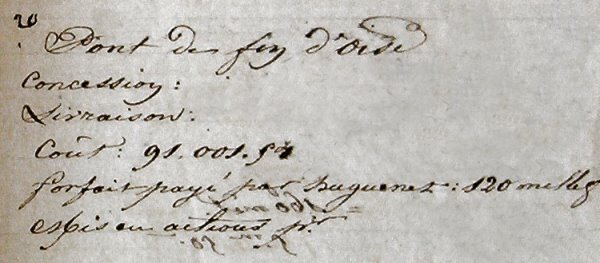 20
Pont de fin d'Oise
Concession :
Livraison :
Coût : 91.001.54
forfait payé par huguenet : 120 milles
espèces en actions pr